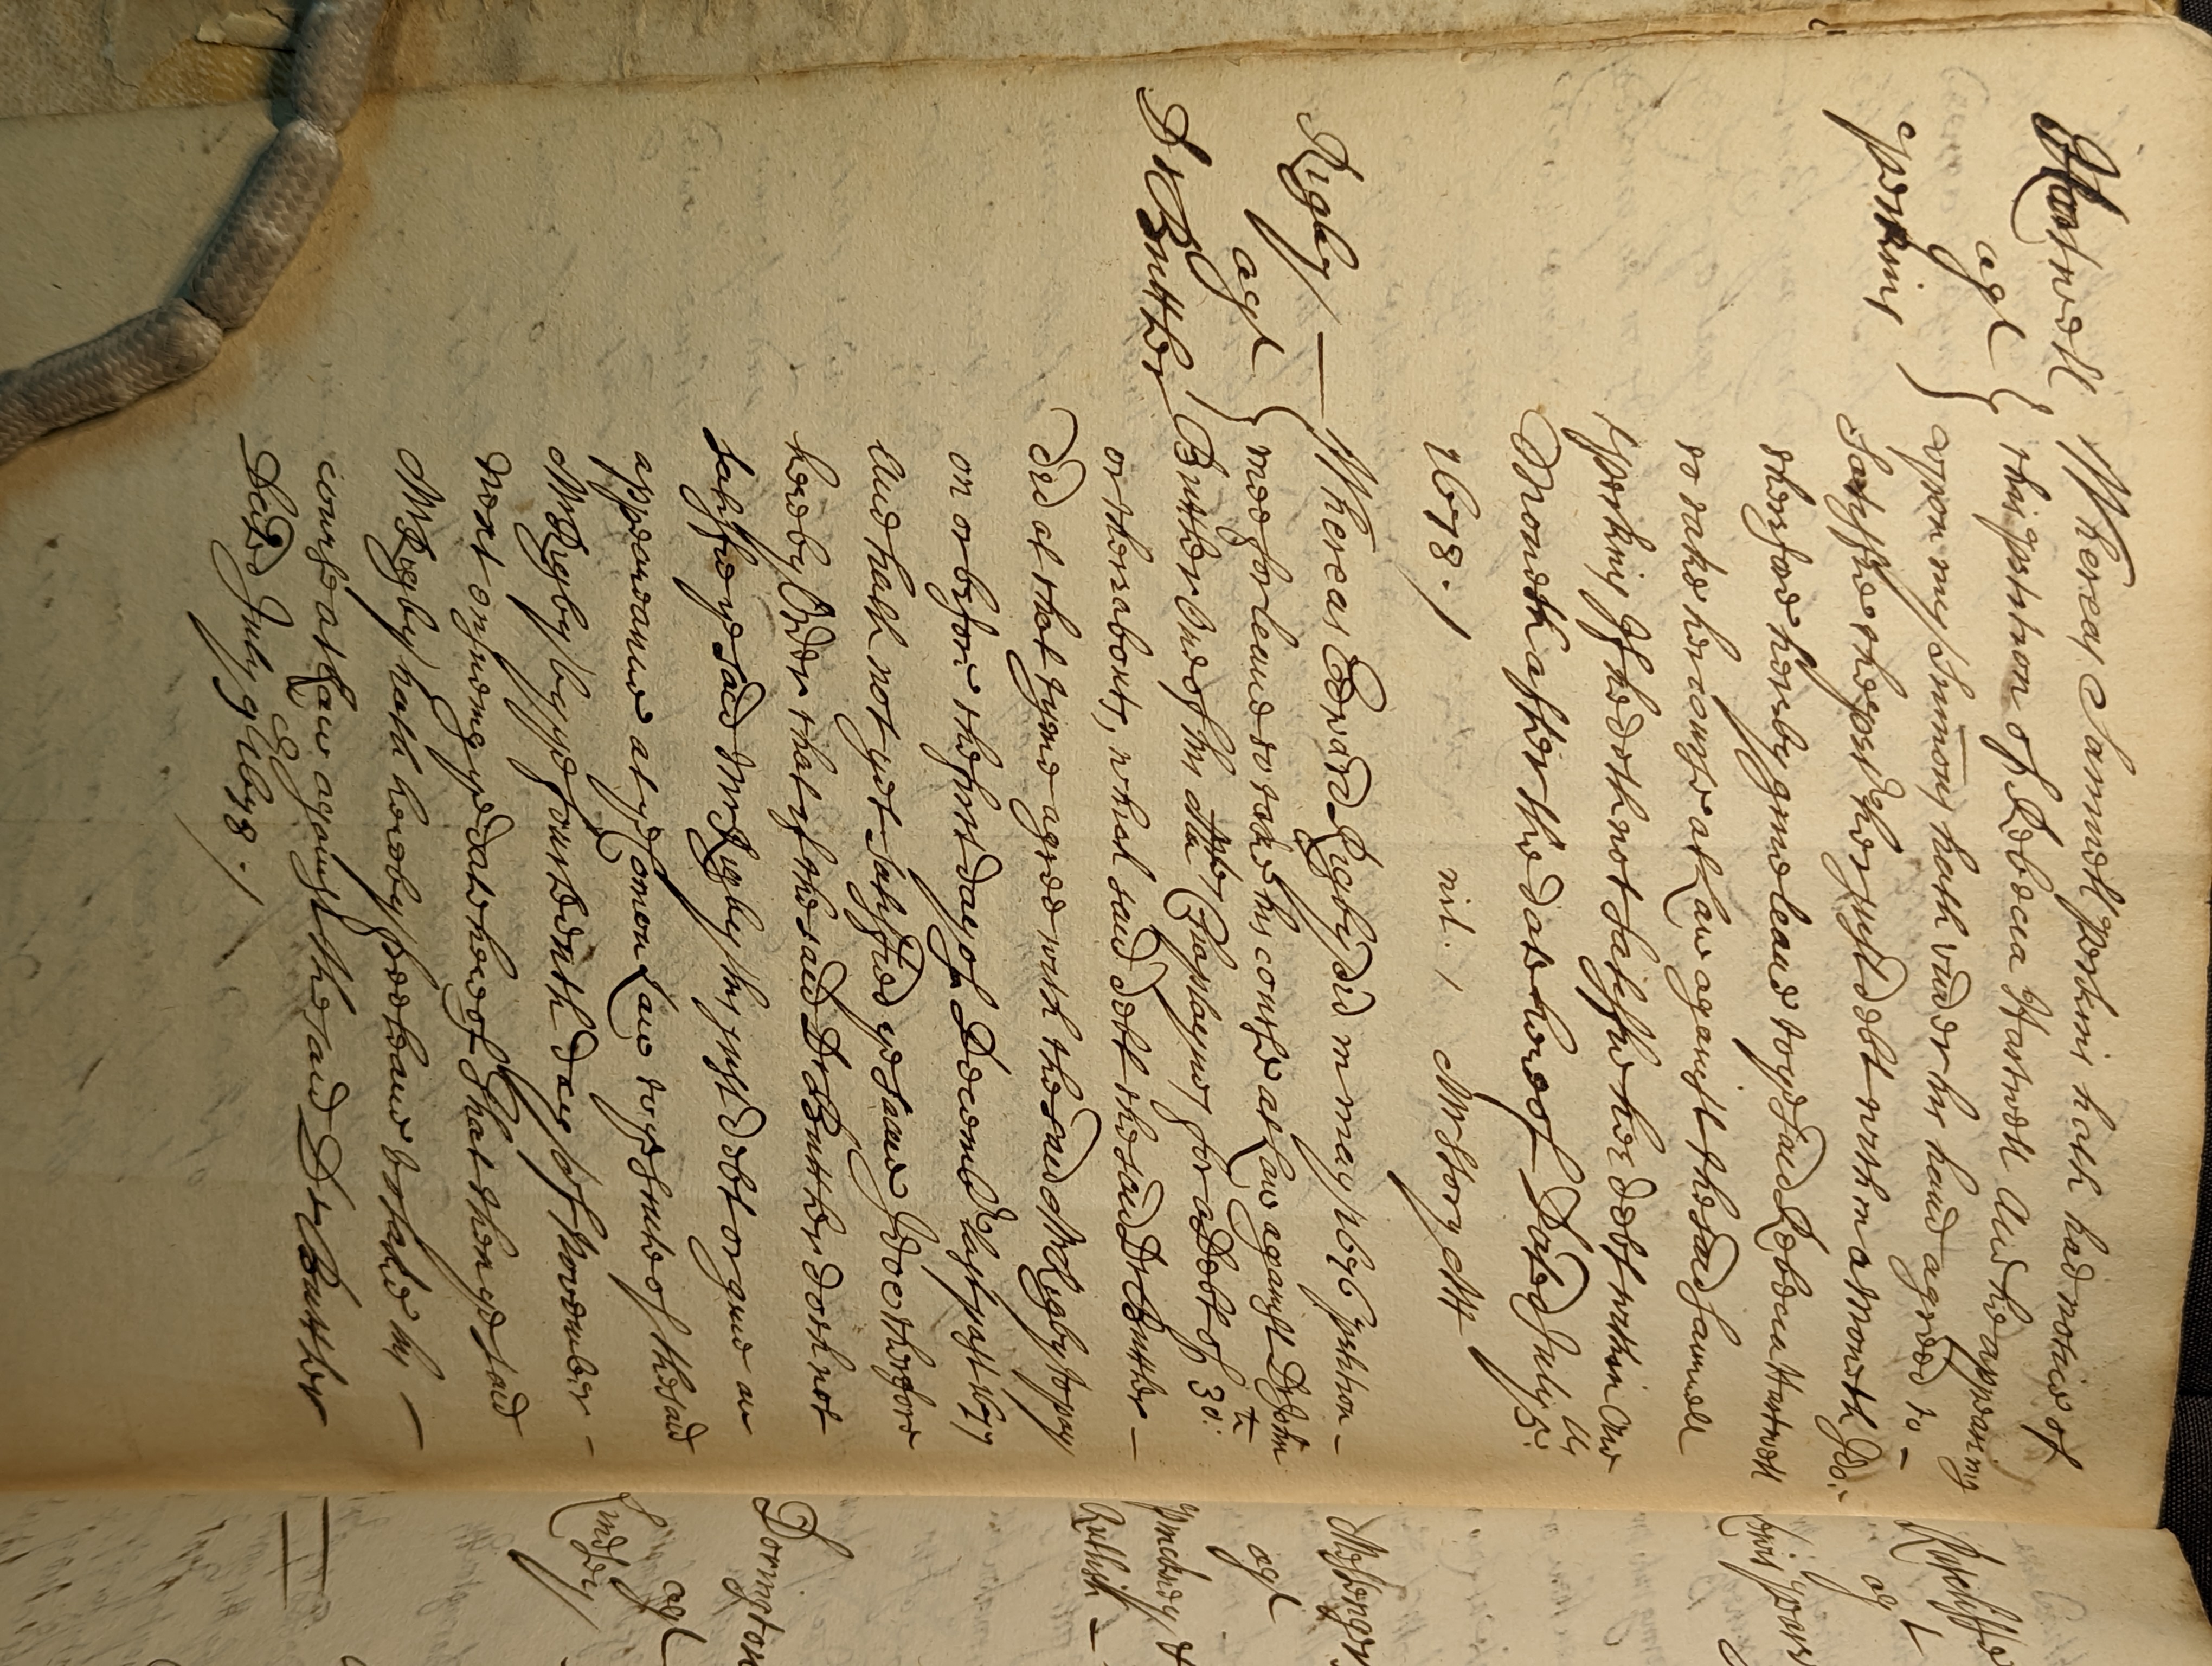 Hartwell
agt
Perkins
Whereas Samuell Perkins hath had notice of
this petition of Rebecca Hartwell And he appearing
uppon my Sumons hath under his hand agreed to
Satisffie the petr her just debt within a Moneth I doe
therefore hereby give leave to ye said Rebecca Hartwell
to take her course at Law against the said Samuell
Perkins If he doth not satisffie her debt within One
Moneth after the date hereof Dated July 5: 
1678. /
nil. / Mr Story Att
Rigby
agt
Dr Butther
Whereas Edward Rigby did in may 1676 petition
mee for leave to take his course at Law against Dr John
Butther One of his Matys Chaplaynes for a Debt of 30: li
or thereabouts, which said debt the said Dr Butther
did at that tyme agree with the said Mr Rigby to pay
on or before the first day of Decembr last past 1677
And hath not yet satisfied ye same I doe therefore
hereby Order that if the said Dr Butther doth not
satisfie ye said Mr Rigby his just debt or give an
appearance at ye Comon Law to ye Suite of the said
Mr Rigby by ye fourteenth day of November
next ensueing ye date hereof That then ye said
Mr Rigby hath hereby free leave to take his
course at Law against the said Dr Butther
Dated July 9 1678. /
agt
Messenger
agt
Pinckney &
Dorrington
agt
Lindsey